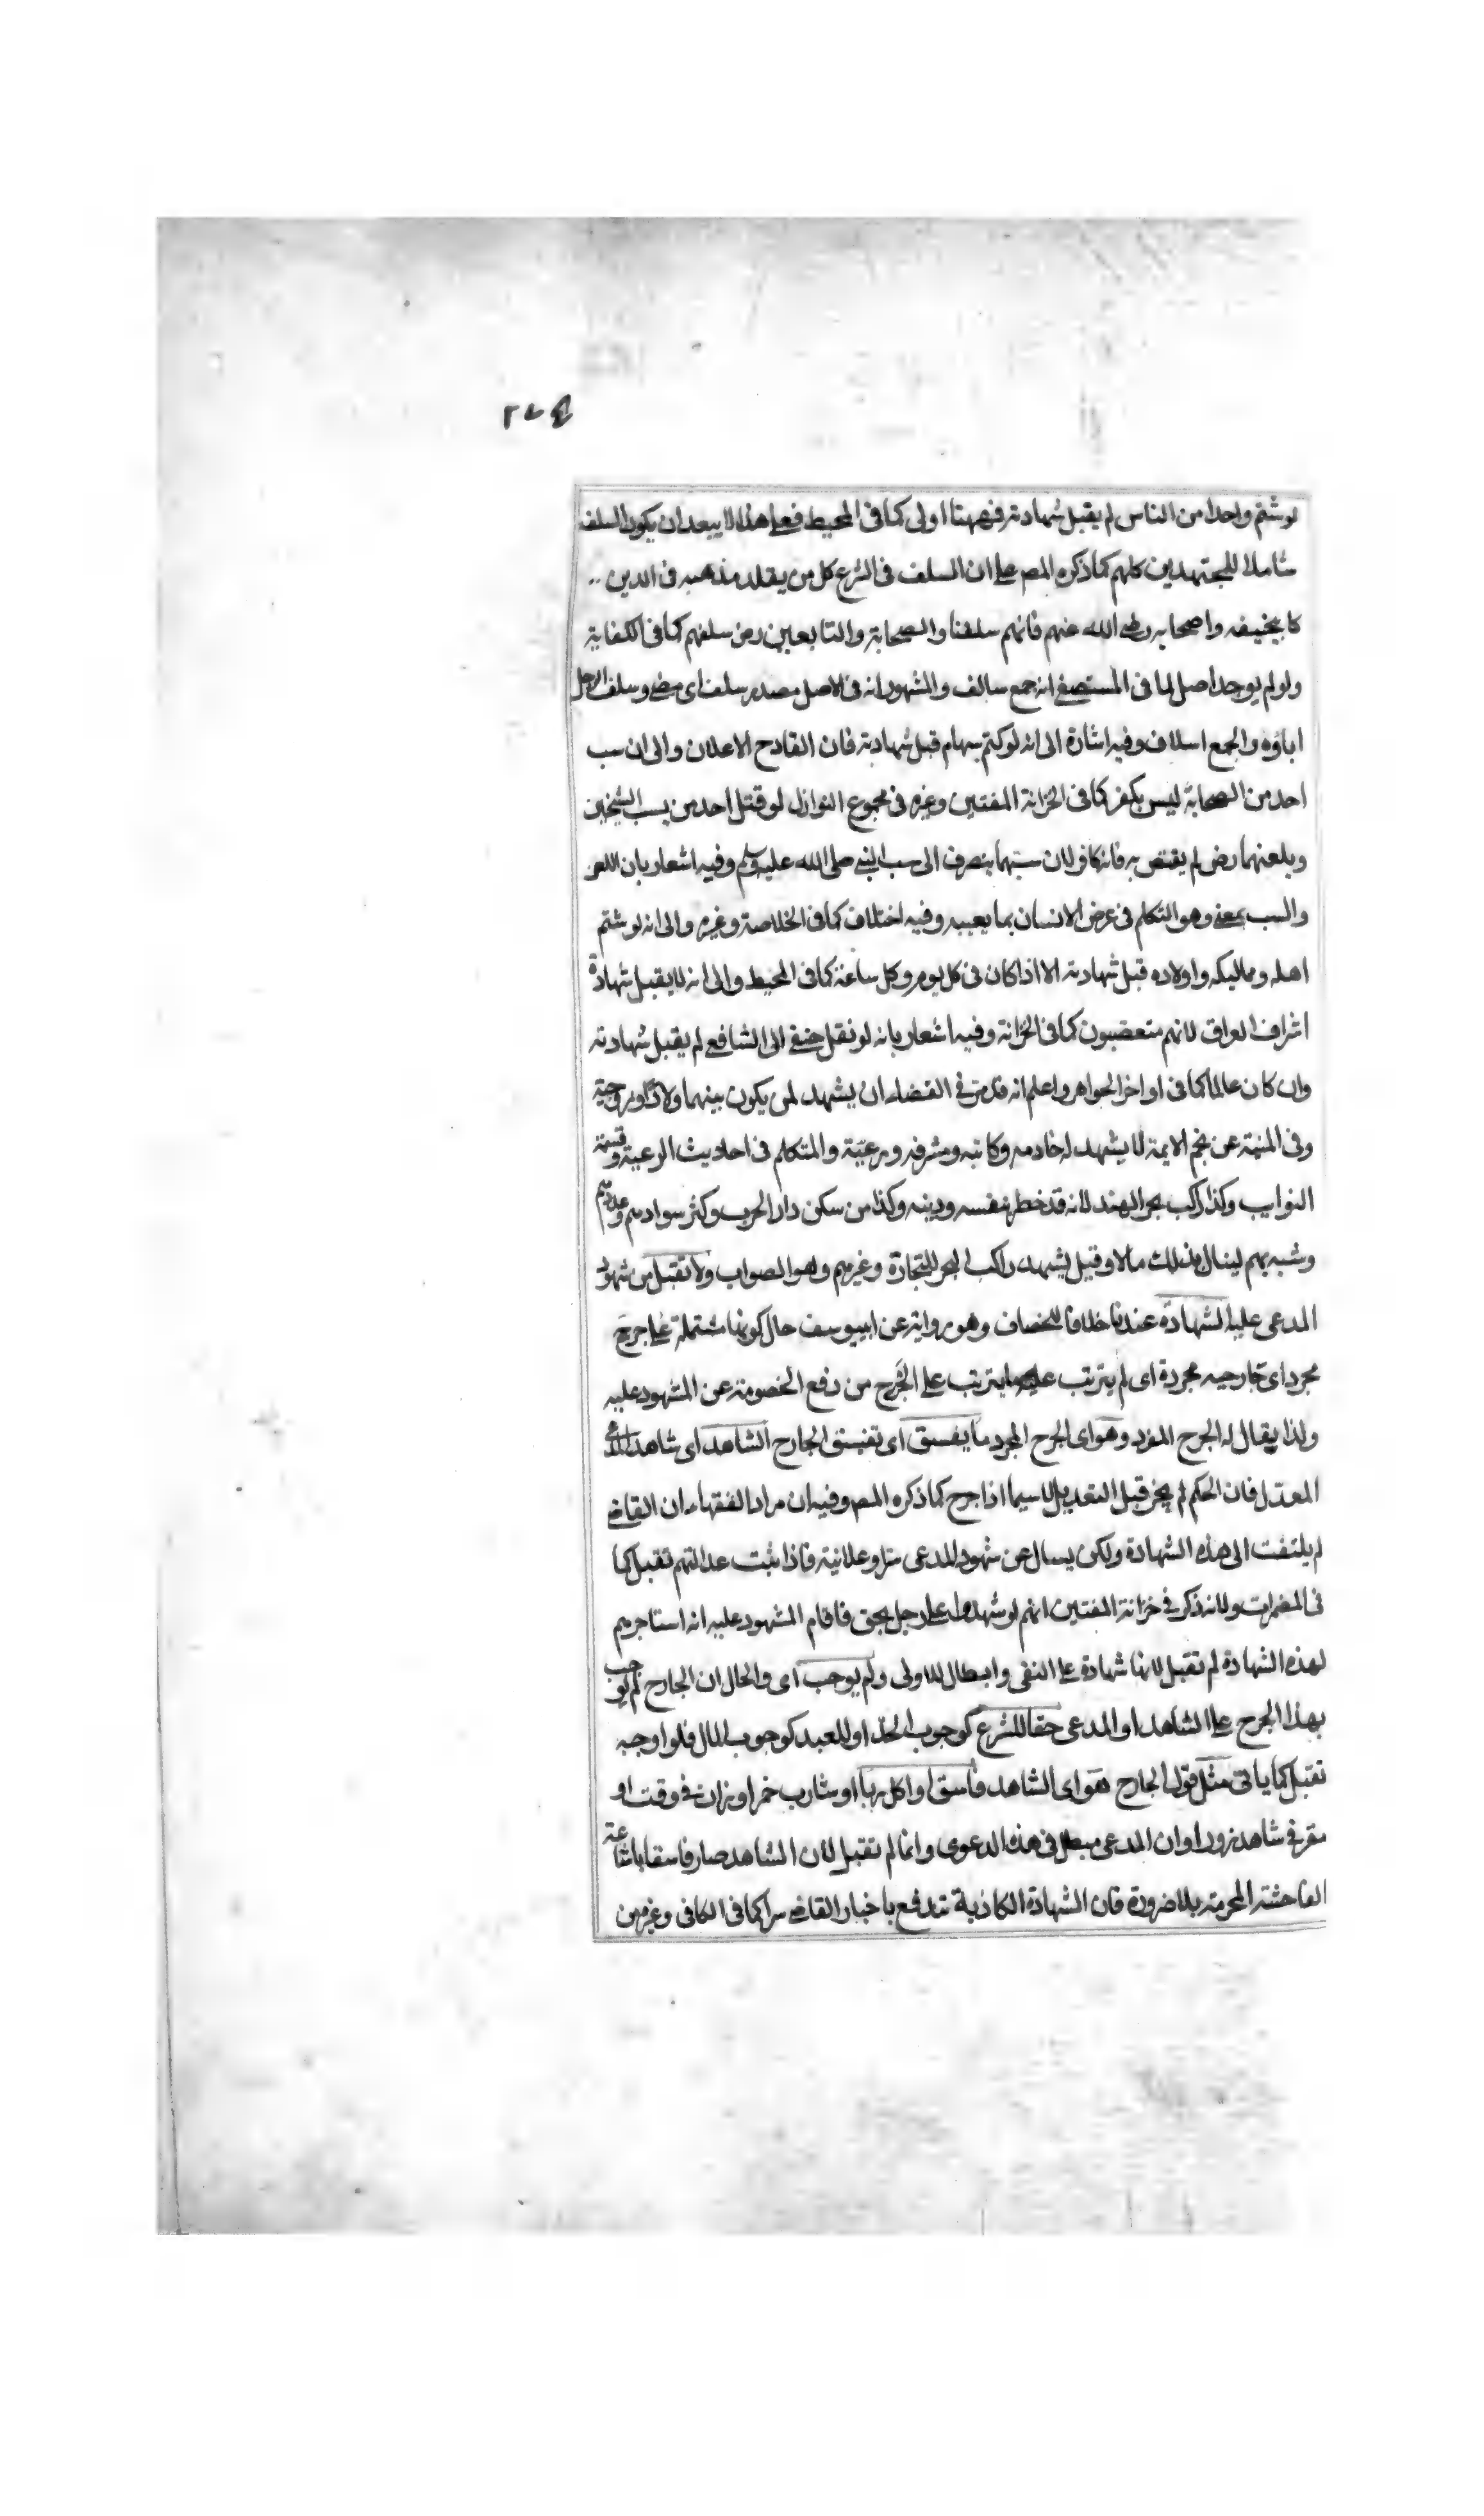 لو شتم واحدا من الناس لم يقبل شهادته فههنا اولى كما فى المحيط فعلى هذا لا يبعد ان يكون السلف
شاملا للمجتهدين كلهم كما ذكره المص على ان السلف فى الشرع كل من يقلد مذهبه فى الدين ..
كابيحنيفه واصحابه رضى الله عنهم فانهم سلفنا والصحابة والتابعين رض سلفهم كما فى الكفاية
ولو لم يوجد اصل لما فى المستصفى انه جمع سالف والمشهور انه فى الاصل مصدر سلف اى مضى وسلف الرجل
اباؤه والجمع اسلاف وفيه اشارة الى انه لو كتم سبهم قبل شهادته فان القادح الاعلان والى ان سب
احد من الصحابة ليس بكفر كما فى الخزانة المفتين وغيره فى مجموع النوازل لو قتل احد من يسب الشيخين
ويلعنهما رض لم يقتص به فانه كافر لان سبهما ينصرف الى سب النبى صلى الله عليه وسلم وفيه اشعار بان اللعن
والسب بمعنى وهو التكلم فى عرض الانسان بما يعيبه وفيه اختلاف كما فى الخلاصة وغيره والى انه لو شتم
اهله ومماليكه واولاده قبل شهادته الا اذا كان فى كل يوم وكل ساعة كما فى المحيط والى انه لا يقبل شهادة
اشراف العراق لانهم متعصبون كما فى الخزانة وفيه اشعار بانه لو نقل حنفى الى الشافعى لم يقبل شهادته
وان كان عالما كما فى اواخر الجواهر واعلم انه قد مر فى القضاء ان يشهد لمن يكون بينهما ولاد او زوجية
وفى المنية عن نجم الايمة لا يشهد له خادمه وكاتبه ومشرفه ورعيته والمتكلم فى احاديث الرعية وقسمة
النوايب وكذا راكب بحر الهند لانه قد خطر بنفسه ودينه وكذا من سكن دار الحرب وكثر سوادهم وعددهم
وشبه بهم لينال بذلك مالا وقيل يشهد راكب البحر للتجارة وغيرهم وهو الصواب ولا تقبل من شهود
المدعى عليه الشهادة عندنا خلافا للخصاف وهو رواية عن ابييوسف حال كونها مشتملة على جرح
مجرد اى جارحيه مجردة اى لم يترتب عليه ما يترتب على الجرح من دفع الخصومة عن المشهود عليه
ولذا يقال له الجرح المفرد وهو اى الجرح المجرد ما يفسق اى تفسيق الجارح الشاهد اى شاهد المدعى
المعدل فان الحكم لم يجز قبل التعديل لاسيما اذا جرح كما ذكره المص وفيه ان مراد الفقهاء ان القاضى
لم يلتفت الى هذه الشهادة ولكن يسال عن شهود المدعى سرا وعلانية فاذا ثبت عدالتهم تقبل كما
فى المضمرات ولانه ذكر فى خزانة المفتين انهم لو شهدوا على رجل بحق فاقام المشهود عليه انه استاجرهم
لهذه الشهادة لم تقبل لانها شهادة على النفى وابطال للاولى ولم يوجب اى والحال ان الجارح لم يوجب
بهذا الجرح على الشاهد او المدعى حقا للشرع كوجوب الحد او للعبد كوجوب المال فلو اوجبه
تقبل كما ياتى مثل قول الجارح هو اى الشاهد فاسق او اكل ربا او شارب خمر او زان فى وقت او
مقر فى شاهد زور او ان المدعى مبطل فى هذه الدعوى وانما لم تقبل لان الشاهد صار فاسقا باشاعة
الفاحشة المحرمة بلا ضرورة فان الشهادة الكاذبة تندفع باخبار القاضى سرا كما فى الكافى وغيره من